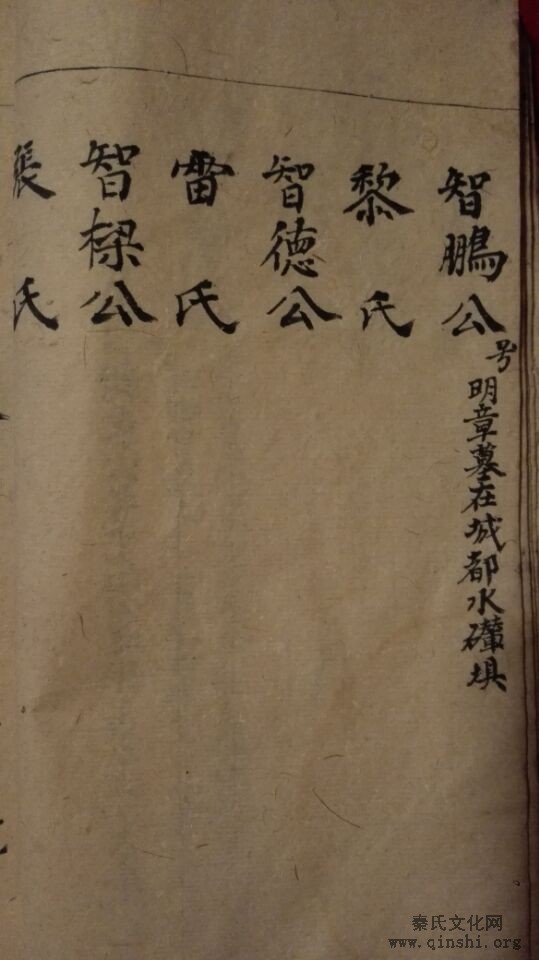 智鵬公
号明章墓在城都水碾垻
黎氏
智德公
雷氏
智樑公
張氏
秦氏文化网
www.qinshi.org